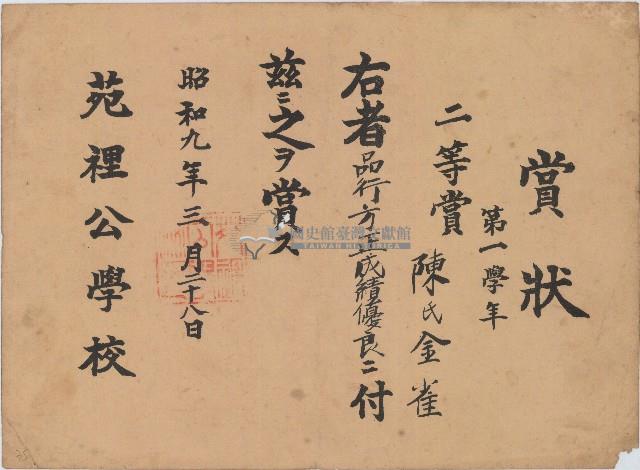 賞狀
第一學年
二等賞 陳氏金雀
右者品行方正成績優良ニ付
茲ニ之ヲ賞ス
昭和九年三月二十八日
苑裡公學校
國史館臺灣文獻館
TAIWAN HISTORICA